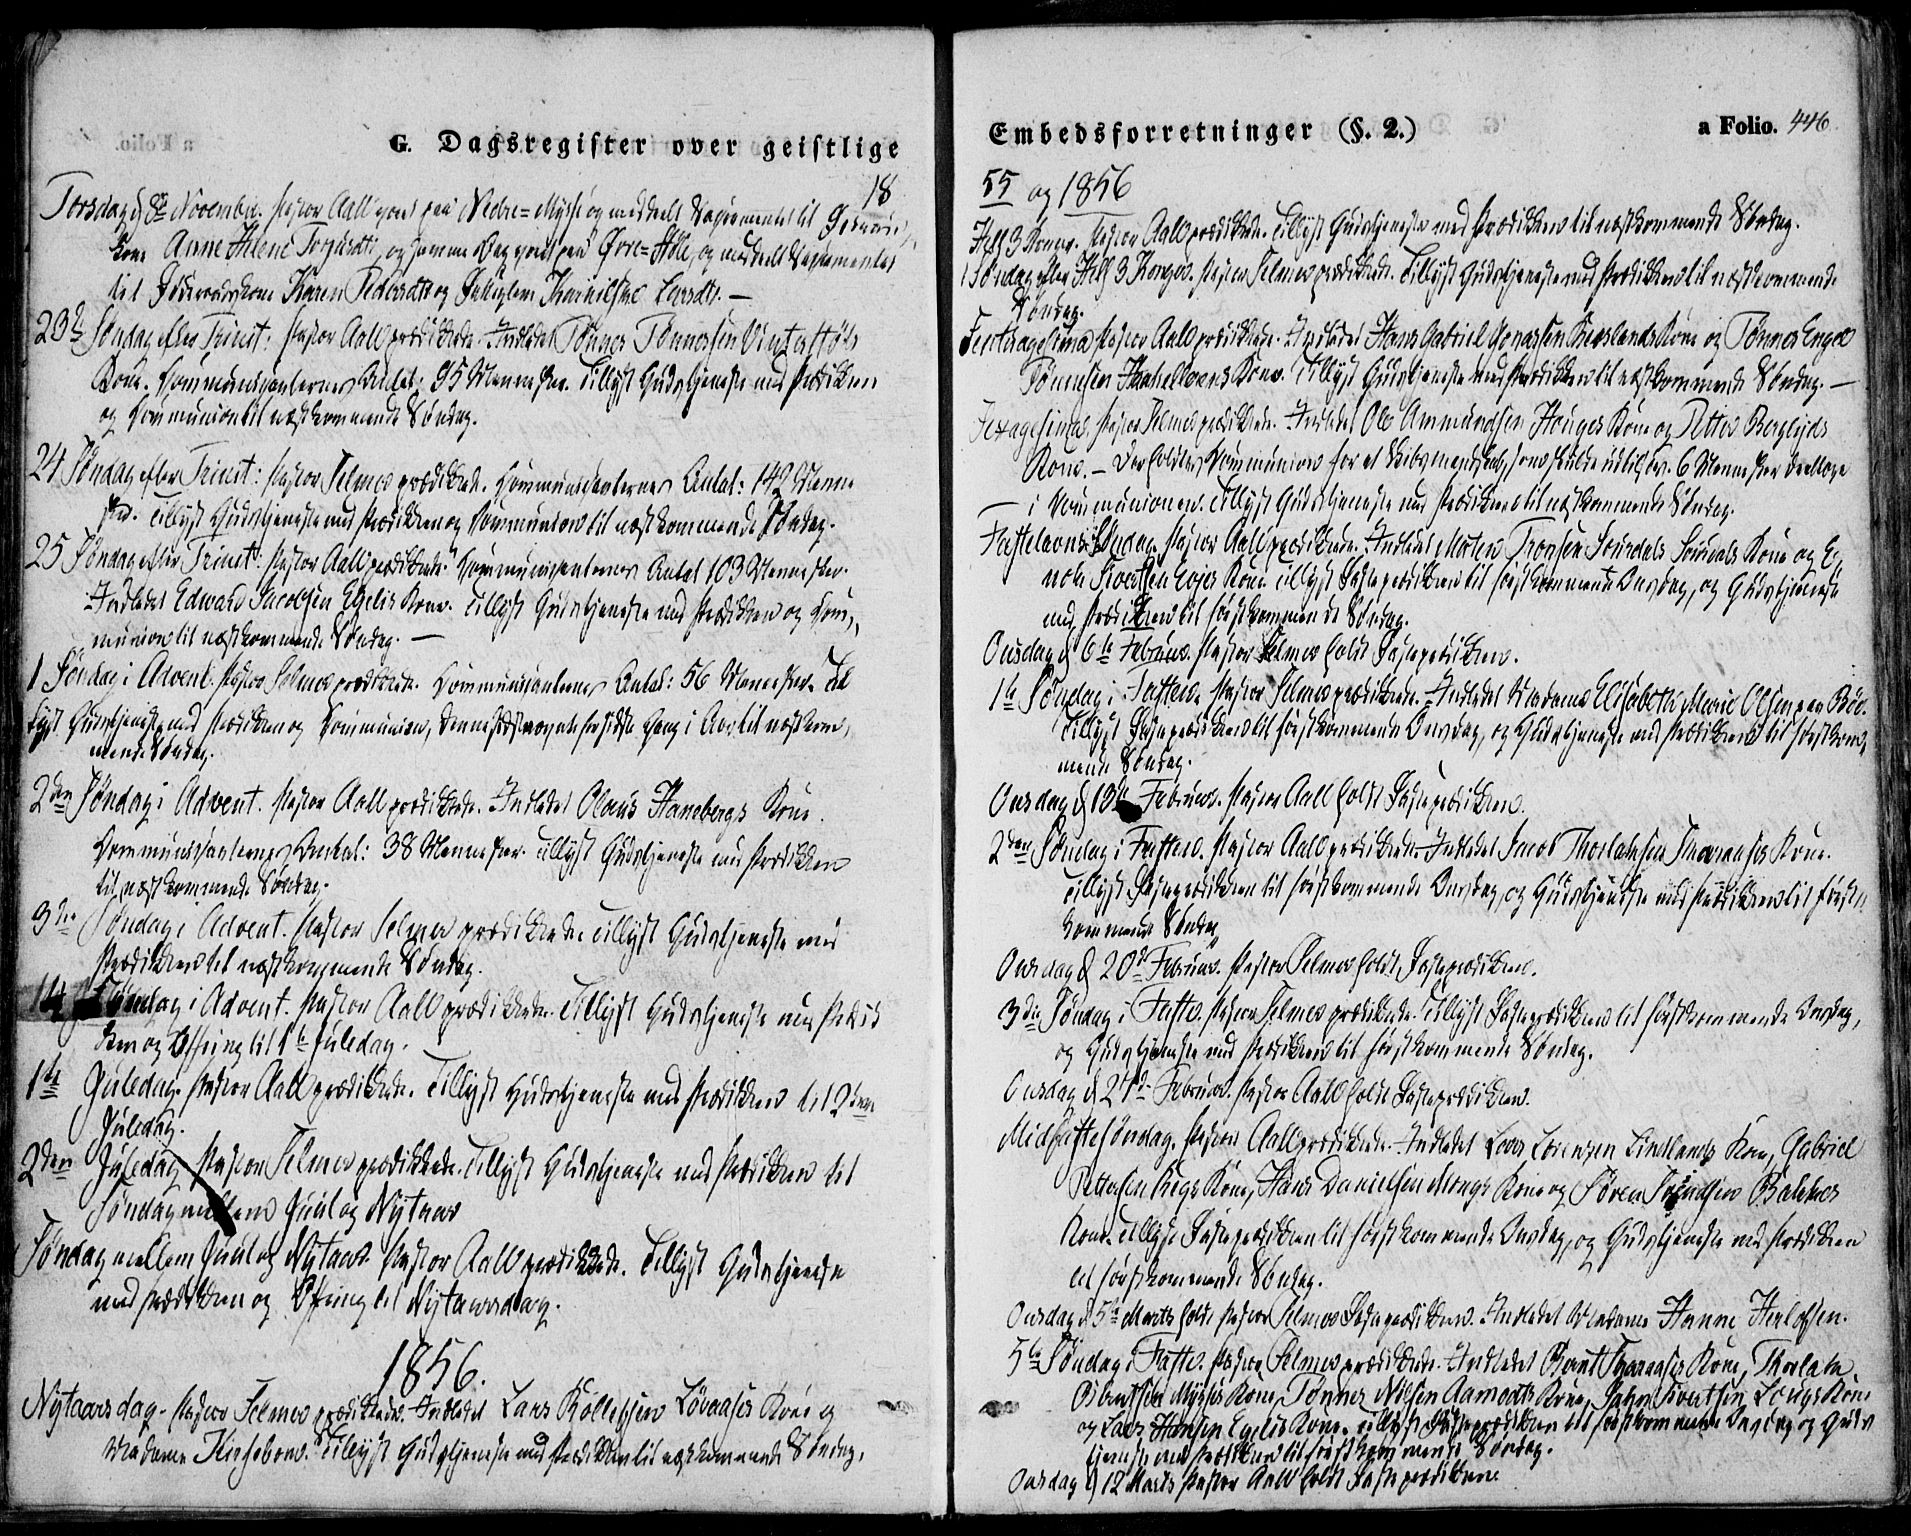 G. Dagsregister over geistlige
18
Torsdag d 8de November. Pastor Aall paa Nedre=Mysse og meddeelt Sacramentet til
Kone Anne Helene og samme Dag paa Øvre= og meddeelt Sacramentet
til kone Karen Pedersdtr og Larsdtr. —
23de Søndag efter Trinit: Pastor Aall prædikede. Indledet Tønnes Tønnessen Vinterstøls
Kone. Communicanternes Antal: 95 Mennesker. Tillyst Gudstjeneste med Prædiken
og Communion til næstkommende Søndag.
24 Søndag efter Trinit: Pastor Selmer prædikede. Communicanternes Antal: 142 Menne
sker. Tillyst Gudstjeneste med Prædiken og Communion til næstkommende Søndag.
25 Søndag efter Trinit: Pastor Aall prædikede. Communicanternes Antal 103 Mennesker.
Indledet Edward Jacobsen Egelis Kone. Tillyst Gudstjeneste med Prædiken og Com,
munion til næstkommende Søndag. —
1 Søndag i Advent. Pastor Selmer prædikede. Communicanternes Antal: 56 Mennesker. Til
lyst Gudstjeneste med Prædiken og Communion, for sidste Gang i Aar, til næstkom,
mende Søndag.
2den Søndag i Advent. Pastor Aall prædikede. Indledet Olaus Hanebergs Kone.
Communicanternes Antal: 38 Mennesker. Tillyst Gudstjeneste med Prædiken
til næstkommende Søndag.
3die Søndag i Advent. Pastor Selmer prædikede. Tillyst Gudstjeneste med
Prædiken til næstkommende Søndag.
4 Søndag i Advent. Pastor Aall prædikede. Tillyst Gudstjeneste med Prædi
ken og Offring til 1te Juledag.
1te Juledag. Pastor Aall prædikede. Tillyst Gudstjeneste med Prædiken til 2den
Juledag.
2den Juledag Pastor Selmer prædikede. Tillyst Gudstjeneste med Prædiken til
Søndag mellem Juul og Nytaar
Søndag mellem Juul og Nytaar. Pastor Aall prædikede. Tillyst Gudstjeneste
med Prædiken og Offring til Nytaarsdag.
1856.
Nytaarsdag. Pastor Selmer prædikede. Indledet Lars Kollefsen Løvaases Kone og
Madame Kirsebom. Tillyst Gudstjeneste med Prædiken til næstkommende Søndag.
Embedsforretninger (§. 2.)
a Folio. 446
55 og 1856
Hell 3 Konger. Pastor Aall prædikede. Tillyst Gudstjeneste med Prædiken til næstkommende Søndag.
1 Søndag efter Hell 3 Konger. Pastor Selmer prædikede. Tillyst Gudstjeneste med Prædiken til næstkommende
Søndag.
Pastor Aall prædikede. Indledet Hans Gabriel Gonassen Kone og Tønnes Engel
Tønnesen Kone. Tillyst Gudstjeneste med Prædiken til næstkommende Søndag. —
Sexagesima. Pastor Selmer prædikede. Indledet Ole Ammundsen Houges Kone og Petter Berglyds
Kone. — Der holdtes Communion for et Skibsmandskab, som skulde udtilsøes. 6 Mennesker deeltoge
i Communionen. Tillyst Gudstjeneste med Prædiken til næstkommende Søndag.
Fastelavns Søndag. Pastor Aall prædikede. Indledet Kone og
Kone. Tillyst Fasteprædiken til førstkommende Onsdag, og Gudstjeneste
med Prædiken til førstkommende Søndag.
Onsdag d 6te Februar. Pastor Selmer holdt Fasteprædiken.
1te Søndag i Fasten. Pastor Selmer prædikede. Indledet Madame Elisabeth Marie Olsen
Tillyst Fasteprædiken til førstkommende Onsdag, og Gudstjeneste med Prædiken til førstkom,
mende Søndag.
Onsdag d 13de Februar. Pastor Aall holdt Fasteprædiken.
2den Søndag i Fasten. Pastor Aall prædikede. Indledet Jacob Kone.
Tillyst Fasteprædiken til førstkommende Onsdag, og Gudstjeneste med Prædiken til først,,
kommende Søndag
Onsdag d 20de Februar. Pastor Selmer holdt Fasteprædiken.
3die Søndag i Faste. Pastor Selmer prædikede. Tillyst Fasteprædiken til førstkommende Onsdag,
og Gudstjeneste med Prædiken til førstkommende Søndag.
Onsdag d 27de Februar. Pastor Aall holdt Fasteprædiken.
Midfastesøndag. Pastor Aall prædikede. Indledet Lars Lorenzen Lindlands Kone, Gabriel
Pettersen Kegs Kone, Hans Danielsen Mongs Kone og Søren
Kone. Tillyst Fasteprædiken til førstkommende Onsdag, og Gudstjeneste med Prædiken
til førstkommende Søndag.
Onsdag d 5te Marts holdt Pastor Selmer Fasteprædiken. Indledet Madame Hanne
5te Søndag i Faste. Pastor Selmer prædikede. Indledet Kone,
Mysses Kone, Tønnes Nielsen Aamodts Kone, Kone
og Lars Hansen Egelis Kone. Tillyst Fasteprædiken til førstkommende Onsdag og Guds
tjeneste med Prædiken til førstkommende Søndag.
Onsdag d 12 Marts Pastor Aall holdt Fasteprædiken